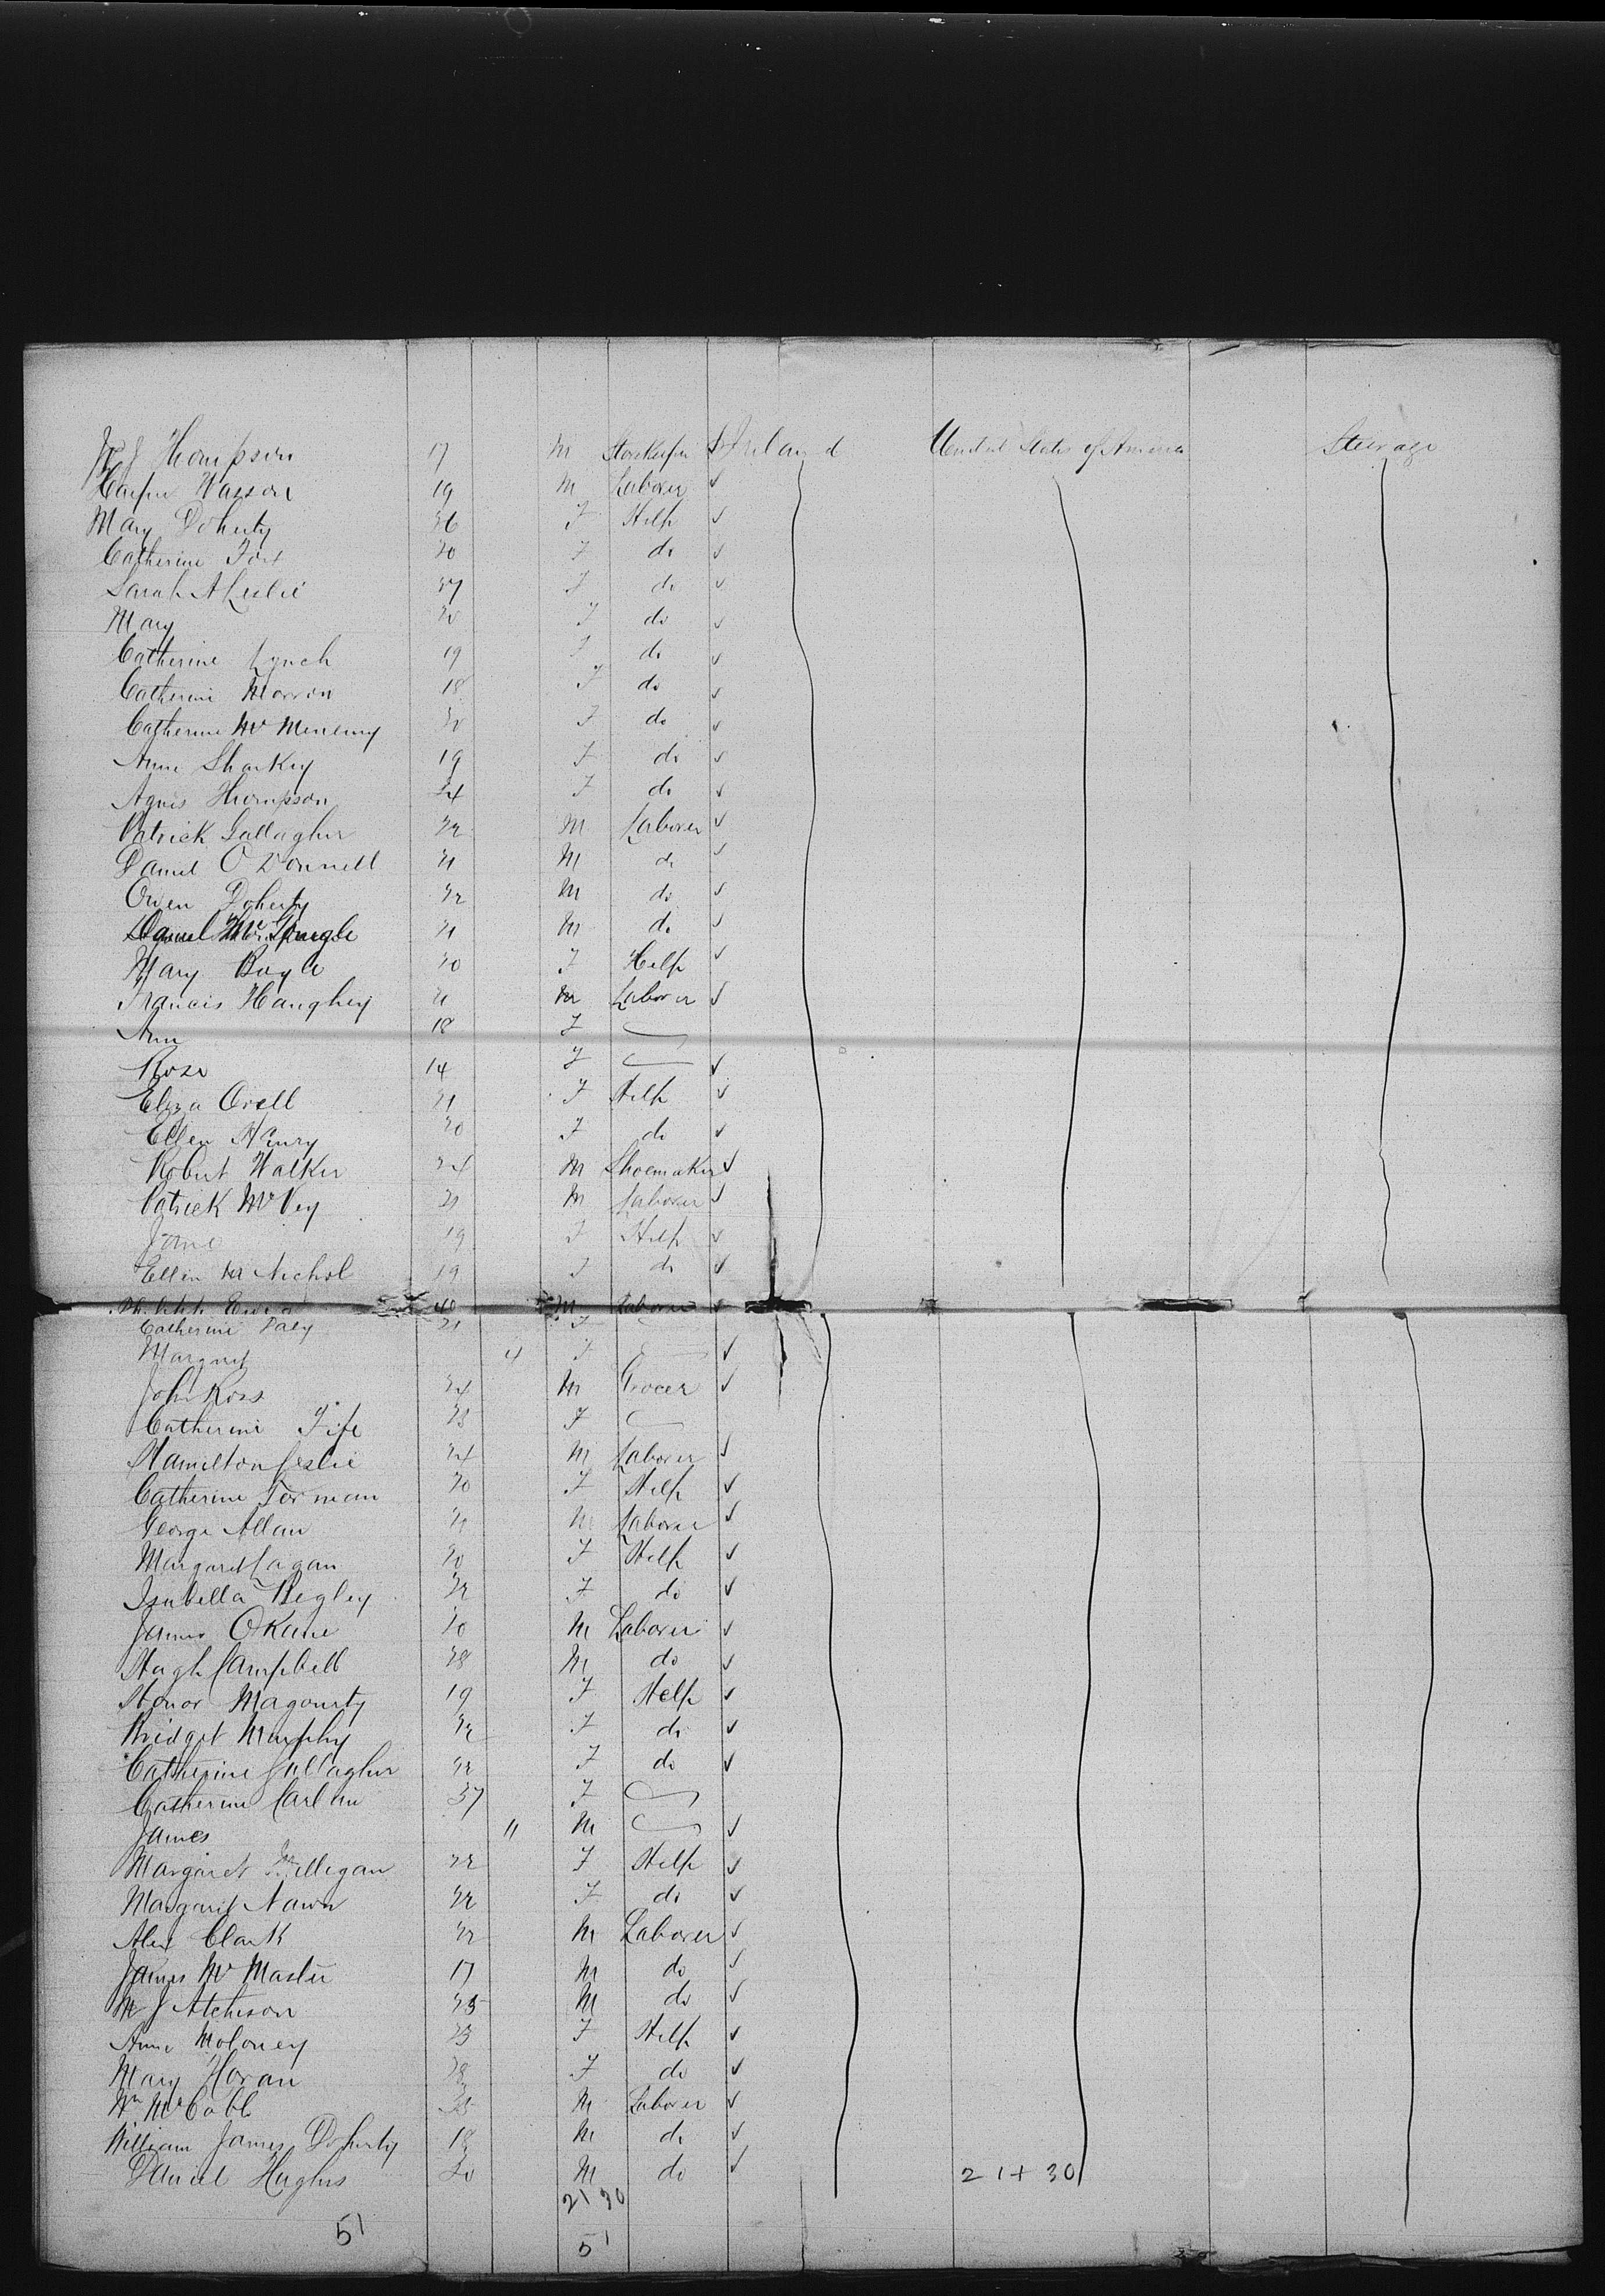 Thompson 17 M Storekeeper Ireland United States of America Steerage
Wasson 19 M Laborer
Mary Doherty 26 F Help
Catherine Fox 20 F do
Sarah A Leslie 27 F do
Mary 20 F do
Catherine Lynch 19 F do
Catherine Morron 18 F do
Catherine Mc Menemy F do
Anne Sharkey 19 F do
Agnes Thompson 24 F do
Patrick Gallagher 22 M Laborer
Daniel O Donnell 21 M do
Owen Doherty 22 M do
Daniel Mc 21 M do
Mary Boyle 20 F Help
Francis Haughey 21 M Laborer
Ann 18 F
Rose 14 F
Eliza 21 F Help
Ellen Henry 20 F do
Robert Walker 24 M Shoemaker
Patrick Mc Vey 21 M Laborer
Jane 19 F Help
Ellen Mc Nichol 19 F do
40 M Laborer
Catherine Daly 21 F
Margaret 4 F
John Ross 24 M Grocer
Catherine Fife 28 F
Hamilton Leslie 24 M Laborer
Catherine Torman 20 F Help
George Allan 21 M Laborer
Margaret Cagan 20 F Help
Isabella Begley 22 F do
James O Kane 20 M Laborer
Hugh Campbell 28 M do
Honor Magourty 19 F Help
Bridget Murphy 22 F do
Catherine Gallagher 22 F do
Catherine Carlin 37 F
James 11 M
Margaret Milligan 22 F Help
Margaret Nawn 22 F do
Alex Clark 22 M Laborer
James Mc Master 17 M do
M J Atcheson 25 M do
Anne Moloney 23 F Help
Mary Horan 28 F do
Wm Mc Cabe M Laborer
William James Doherty 18 M do
Daniel Hughes 20 M do 21 + 30
21 30
51 51